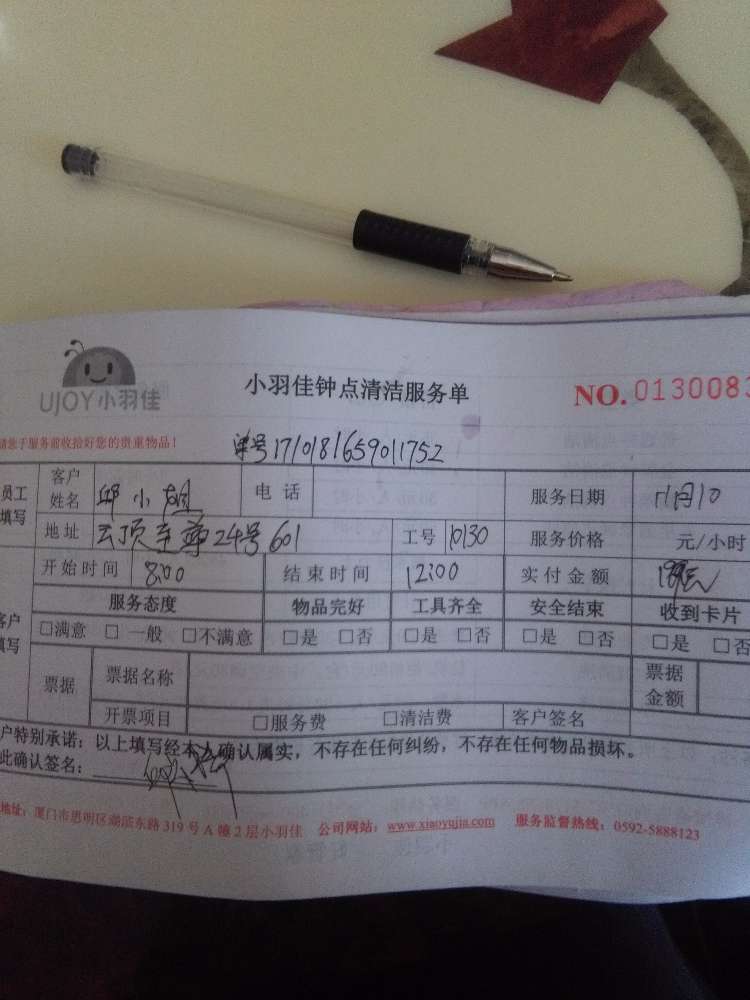 UJOY小羽佳
小羽佳钟点清洁服务单 NO.0130083
请您于服务前收拾好您的贵重物品！
单号1710181659011752
员工填写 客户姓名 邱小 电话 服务日期 11月10
地址 云顶至尊24号601 工号 10130 服务价格 元/小时
开始时间 8:00 结束时间 12:00 实付金额
客户填写 服务态度 物品完好 工具齐全 安全结束 收到卡片
□满意 □一般 □不满意 □是 □否 □是 □否 □是 □否 □是 □否
票据 票据名称 票据金额
开票项目 □服务费 □清洁费 客户签名
户特别承诺：以上填写经本人确认属实，不存在任何纠纷，不存在任何物品损坏。
此确认签名：
地址：厦门市思明区湖滨东路319号A幢2层小羽佳 公司网站：www.xiaoyujia.com 服务监督热线：0592-5888123